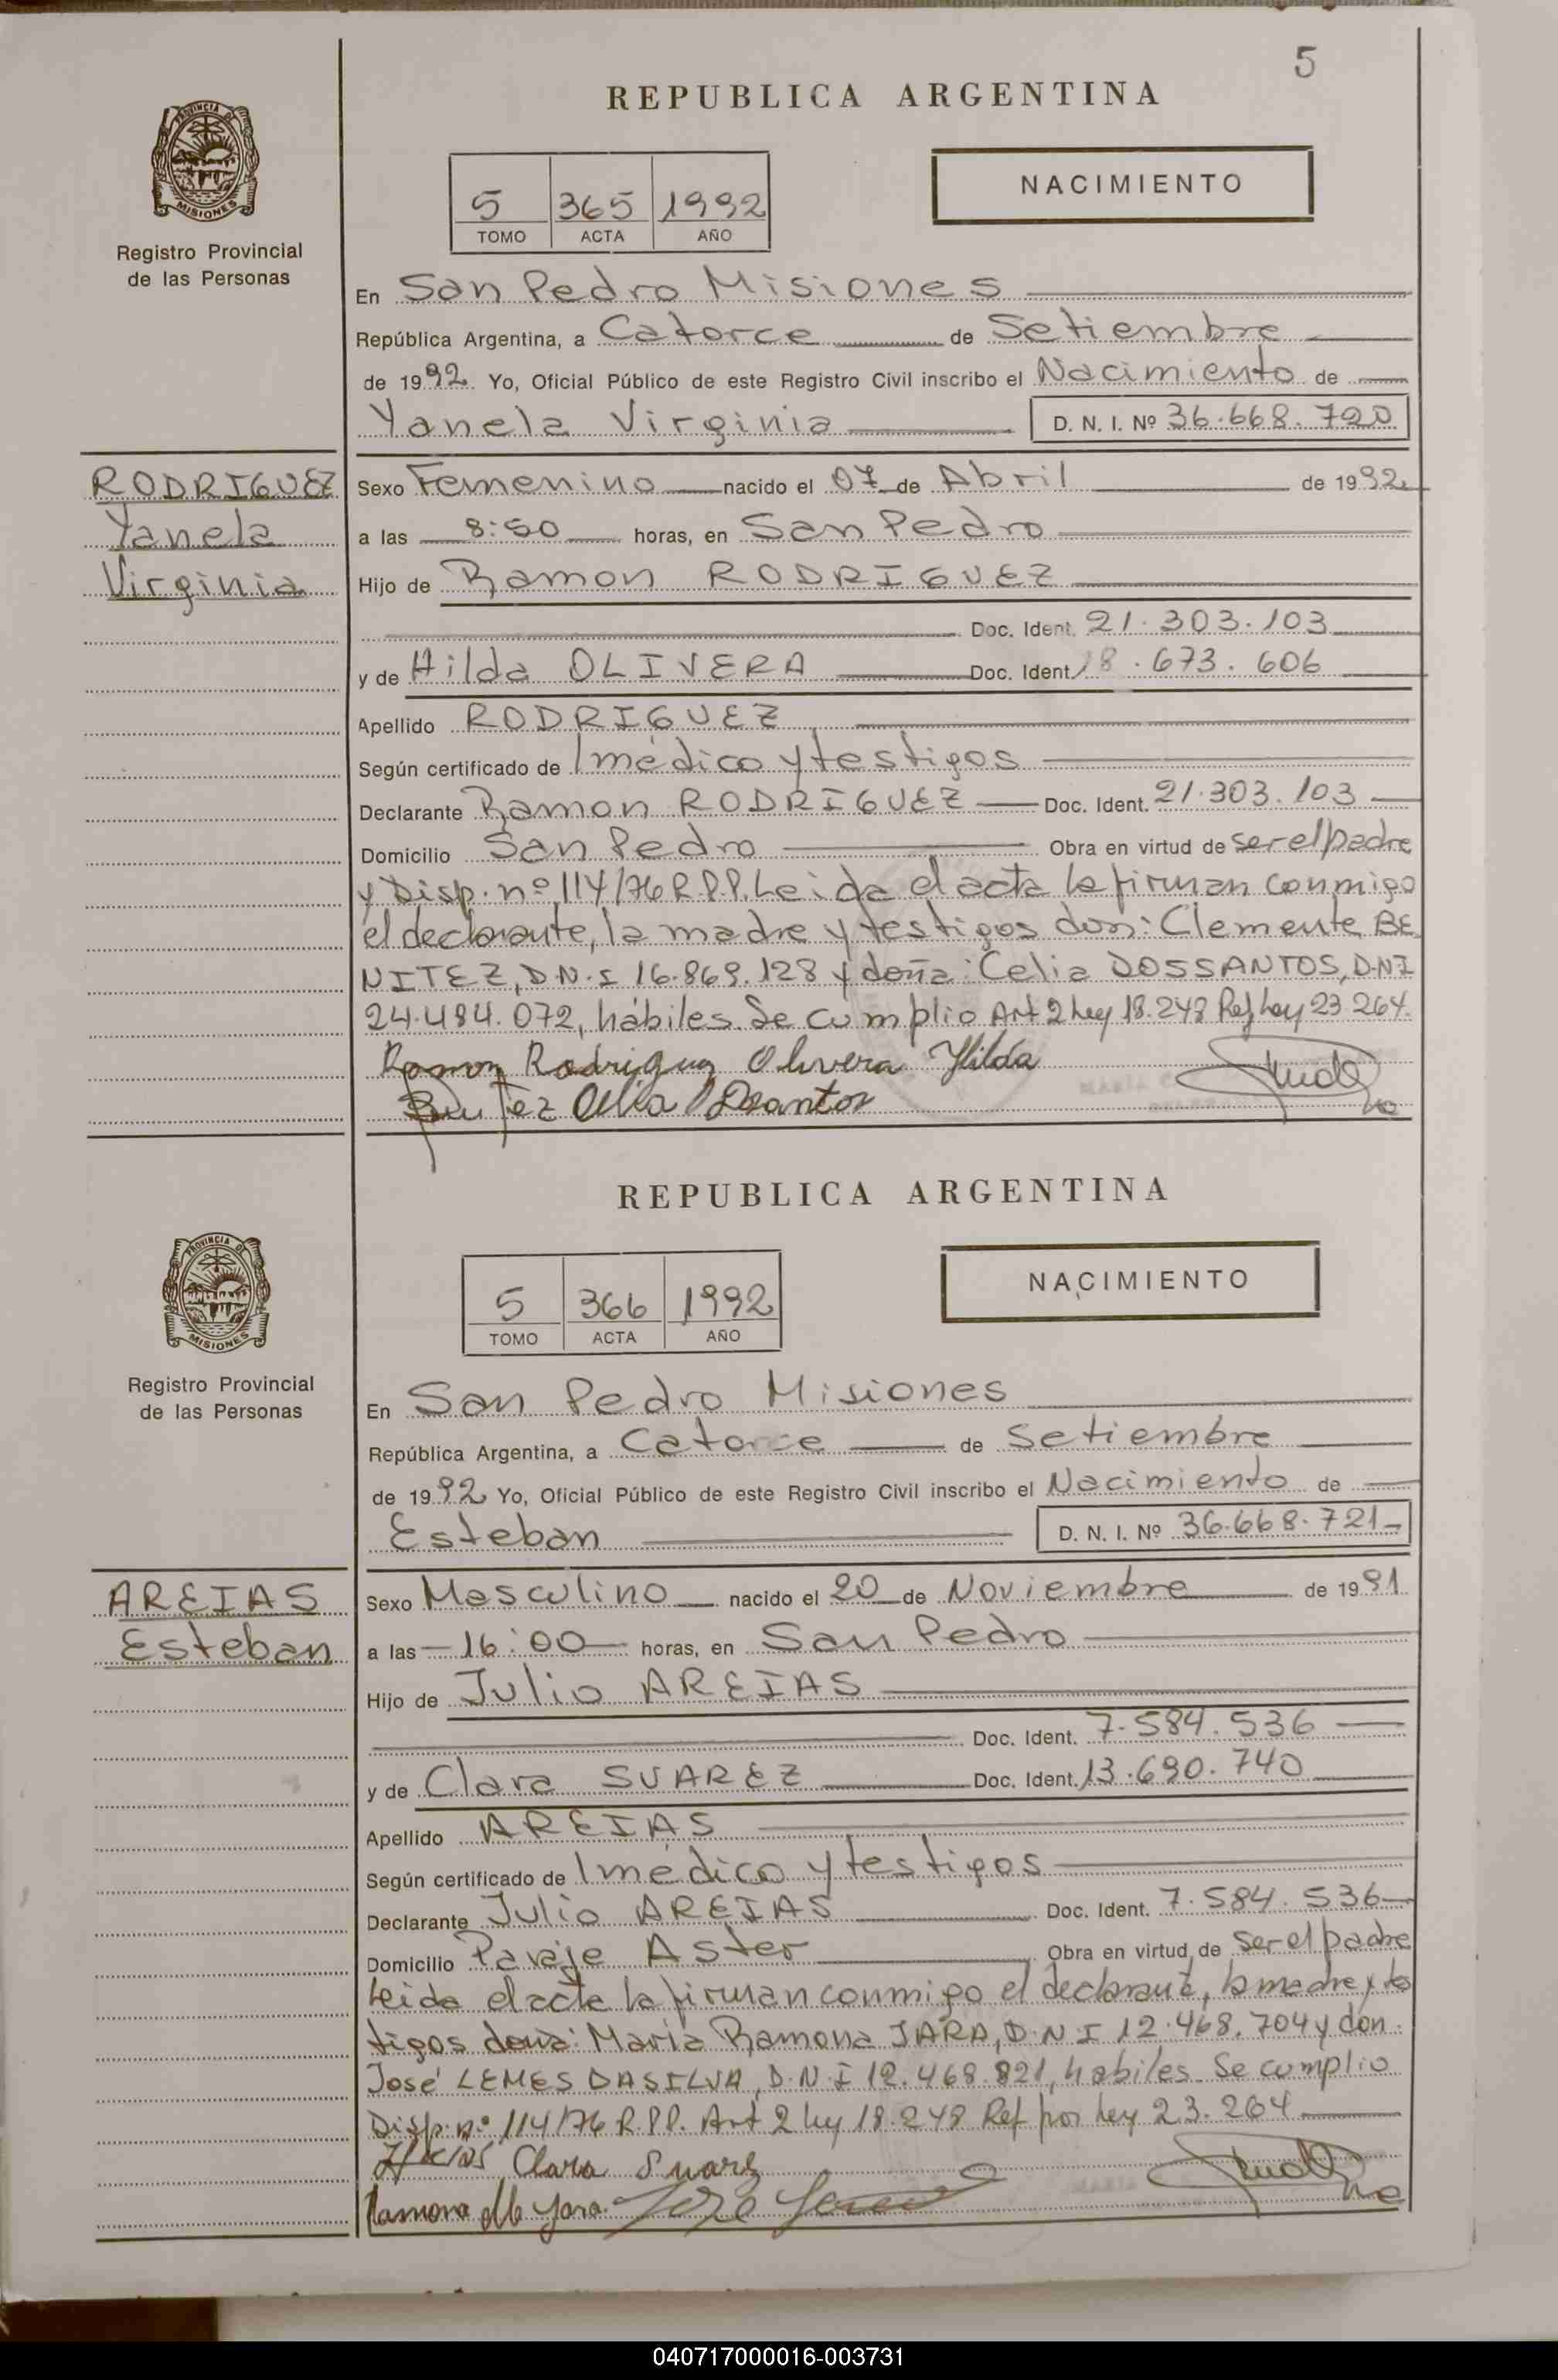 5
REPUBLICA ARGENTINA
PROVINCIA DE
MISIONES
Registro Provincial
de las Personas
NACIMIENTO
5 365 1992
TOMO ACTA AÑO
En San Pedro Misiones
República Argentina, a Catorce de Setiembre
de 1992 Yo, Oficial Público de este Registro Civil inscribo el Nacimiento de
Yanela Virginia D. N. I. Nº 36.668.720
RODRIGUEZ
Yanela
Virginia
Sexo Femenino nacido el 07 de Abril de 1992
a las 8:50 horas, en San Pedro
Hijo de Ramon RODRIGUEZ
Doc. Ident. 21.303.103
y de Hilda OLIVERA Doc. Ident. 18.673.606
Apellido RODRIGUEZ
Según certificado de 1 médico y testigos
Declarante Ramon RODRIGUEZ Doc. Ident. 21.303.103
Domicilio San Pedro Obra en virtud de ser el padre
y Disp. nº 114/76 R.P.P. Leida el acta la firman conmigo
el declarante, la madre y testigos don: Clemente BE
NITEZ, D.N.I 16.869.128 y doña: Celia DOSSANTOS, D.N.I
24.484.072, hábiles. Se cumplio Art 2 Ley 18.248 Ref Ley 23.264.
Ramon Rodriguez Olivera Hilda
Benitez Celia Dsantos
REPUBLICA ARGENTINA
PROVINCIA DE
MISIONES
Registro Provincial
de las Personas
NACIMIENTO
5 366 1992
TOMO ACTA AÑO
En San Pedro Misiones
República Argentina, a Catorce de Setiembre
de 1992 Yo, Oficial Público de este Registro Civil inscribo el Nacimiento de
Esteban D. N. I. Nº 36.668.721
AREIAS
Esteban
Sexo Masculino nacido el 20 de Noviembre de 1991
a las 16:00 horas, en San Pedro
Hijo de Julio AREIAS
Doc. Ident. 7.584.536
y de Clara SUAREZ Doc. Ident. 13.690.740
Apellido AREIAS
Según certificado de 1 médico y testigos
Declarante Julio AREIAS Doc. Ident. 7.584.536
Domicilio Paraje Aster Obra en virtud de ser el padre
Leida el acta la firman conmigo el declarante, la madre y tes
tigos doña: Maria Ramona JARA, D.N.I 12.468.704 y don
José LEMES DASILVA, D.N.I 12.468.821, habiles. Se cumplio
Disp. nº 114/76 R.P.P. Art 2 Ley 18.248 Ref por Ley 23.264
Clara Suarez
Ramona Jara José
040717000016-003731